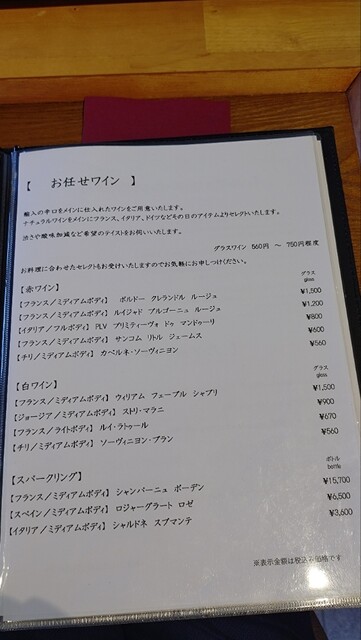 【 お任せワイン 】
輸入の辛口をメインに仕入れたワインをご用意いたします。
ナチュラルワインをメインにフランス、イタリア、ドイツなどその日のアイテムよりセレクトいたします。
渋さや酸味加減など希望のテイストをお伺いいたします。
グラスワイン 560円 ～ 750円程度
お料理に合わせたセレクトもお受けいたしますのでお気軽にお申しつけください。
【赤ワイン】 グラス
glass
【フランス/ミディアムボディ】 ボルドー クレランドル ルージュ ¥1,500
【フランス/ミディアムボディ】 ルイジャド ブルゴーニュ ルージュ ¥1,200
【イタリア/フルボディ】 PLV プリミティーヴォ ドゥ マンドゥーリ ¥800
【フランス/ミディアムボディ】 サンコム リトル ジェームス ¥600
【チリ/ミディアムボディ】 カベルネ・ソーヴィニヨン ¥560
【白ワイン】 グラス
glass
【フランス/ミディアムボディ】 ウィリアム フェーブル シャブリ ¥1,500
【ジョージア/ミディアムボディ】 ストリ・マラニ ¥900
【フランス/ライトボディ】 ルイ・ラトゥール ¥670
【チリ/ミディアムボディ】 ソーヴィニヨン・ブラン ¥560
【スパークリング】 ボトル
bottle
【フランス/ミディアムボディ】 シャンパーニュ ボーデン ¥15,700
【スペイン/ミディアムボディ】 ロジャーグラート ロゼ ¥6,500
【イタリア/ミディアムボディ】 シャルドネ スプマンテ ¥3,600
※表示金額は税込み価格です